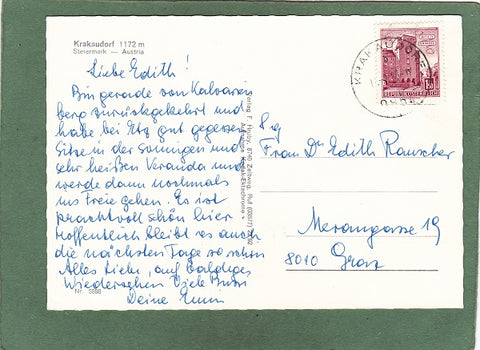 Krakaudorf 1172 m
Steiermark — Austria
Liebe Edith!
Bin gerade von Kalvarien
berg zurückgekehrt und
habe bei Etz gut gegessen
Sitze in der sonnigen und
sehr heißen Veranda und
werde dann nochmals
ins Freie gehen. Es ist
prachtvoll schön hier
Hoffentlich bleibt es auch
die nächsten Tage so schön
Alles Liebe, auf baldiges
Wiedersehen Viele Bussi
Deine
Verlag F. 8740 Zeltweg, Ruf
KRAKAUDORF
REPUBLIK ÖSTERREICH
Frau Dr Edith Rauscher
Merangasse 19
8010 Graz